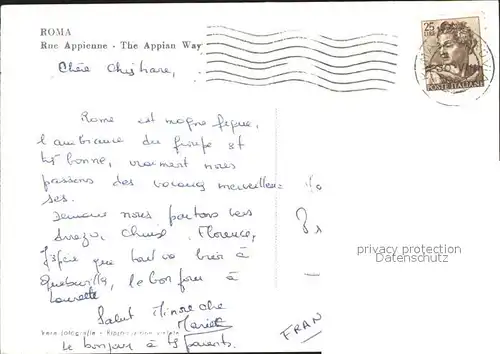 ROMA
Rue Appienne - The Appian Way
25
LIRE
POSTE ITALIANE
Chère Christiane,
Rome est magnifique,
l'ambiance du groupe est
très bonne, vraiment nous
passons des vacances merveilleu=
ses.
Demain nous partons vers
Arezzo, Chiusi, Florence,
J'espère que tout va bien à
le bonjour à
Laurette
Salut
le bonjour à tes parents.
Vera fotografia - Riproduzione vietata
FRAN
privacy protection
Datenschutz